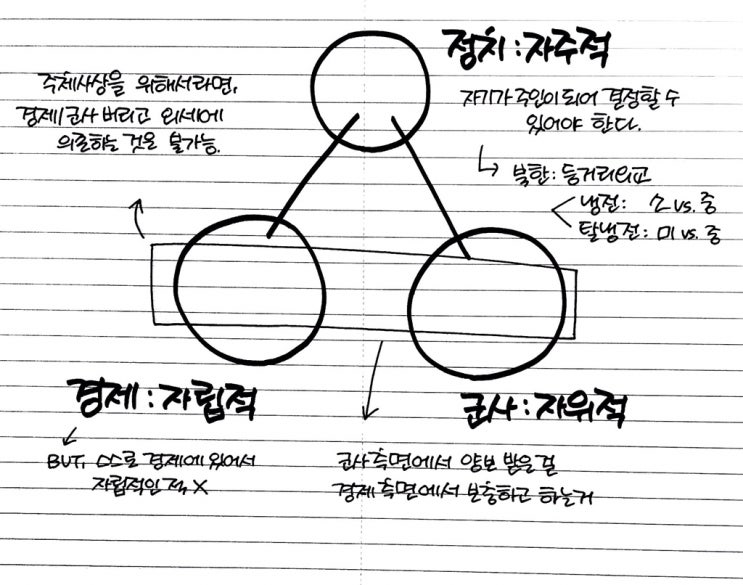 정치 : 자주적
자기가 주인이 되어 결정할 수
있어야 한다.
↳ 북한 : 등거리외교
냉전 : 소 vs. 중
탈냉전 : 미 vs. 중
주체사상을 위해서라면,
경제/군사 버리고 외세에
의존하는 것은 불가능.
경제 : 자립적
BUT, 스스로 경제에 있어서
자립적인 적 X
군사 : 자위적
군사 측면에서 양보 받은 걸
경제 측면에서 보충하고 하는거